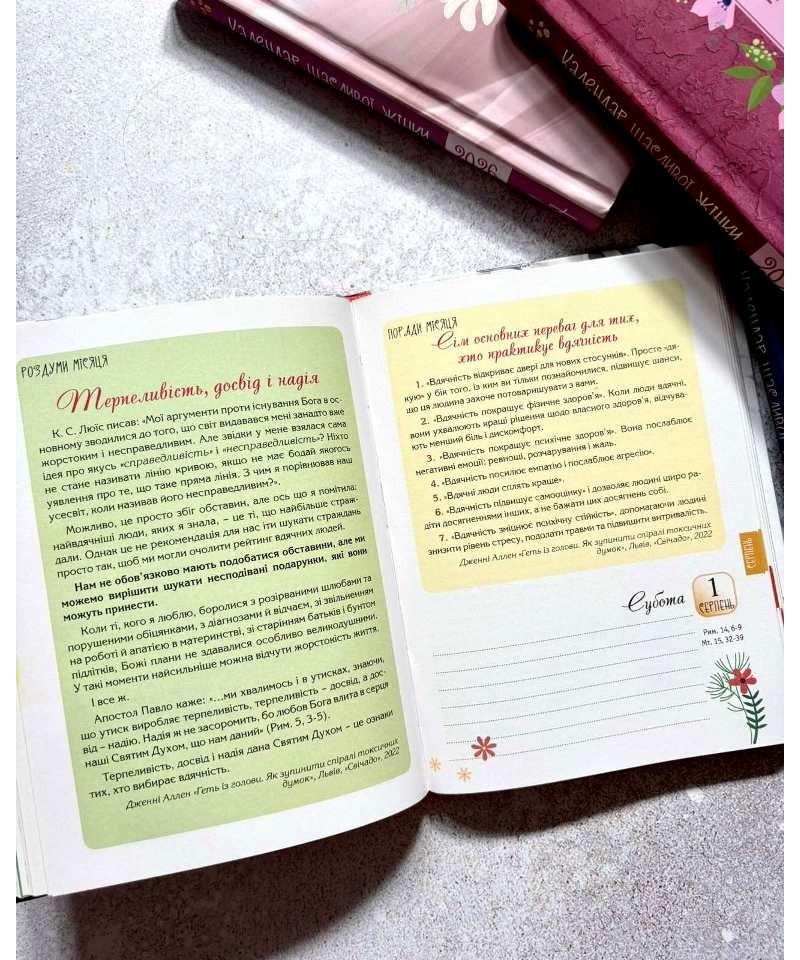 Календар щасливої жінки 2026
Календар щасливої жінки
Календар щасливої
РОЗДУМИ МІСЯЦЯ
Терпеливість, досвід і надія
К. С. Люїс писав: «Мої аргументи проти існування Бога в ос-
новному зводилися до того, що світ видавався мені занадто вже
жорстоким і несправедливим. Але звідки у мене взялася сама
ідея про якусь «справедливість» і «несправедливість»? Ніхто
не стане називати лінію кривою, якщо не має бодай якогось
уявлення про те, що таке пряма лінія. З чим я порівнював наш
усесвіт, коли називав його несправедливим?».
Можливо, це просто збіг обставин, але ось що я помітила:
найвдячніші люди, яких я знала, – це ті, що найбільше страж-
дали. Однак це не рекомендація для нас іти шукати страждань
просто так, щоб ми могли очолити рейтинг вдячних людей.
Нам не обов'язково мають подобатися обставини, але ми
можемо вирішити шукати несподівані подарунки, які вони
можуть принести.
Коли ті, кого я люблю, боролися з розірваними шлюбами та
порушеними обіцянками, з діагнозами й відчаєм, зі звільненням
на роботі й апатією в материнстві, зі старінням батьків і бунтом
підлітків, Божі плани не здавалися особливо великодушними.
У такі моменти найсильніше можна відчути жорстокість життя.
І все ж.
Апостол Павло каже: «…ми хвалимось і в утисках, знаючи,
що утиск виробляє терпеливість, терпеливість – досвід, а дос-
від – надію. Надія ж не засоромить, бо любов Бога влита в серця
наші Святим Духом, що нам даний» (Рим. 5, 3-5).
Терпеливість, досвід і надія дана Святим Духом – це ознаки
тих, хто вибирає вдячність.
Дженні Аллен «Геть із голови. Як зупинити спіралі токсичних
думок», Львів, «Свічадо», 2022
ПОРАДИ МІСЯЦЯ
Сім основних переваг для тих,
хто практикує вдячність
1. «Вдячність відкриває двері для нових стосунків». Просте «дя-
кую» у бік того, із ким ви тільки познайомилися, підвищує шанси,
що ця людина захоче потоваришувати з вами.
2. «Вдячність покращує фізичне здоров'я». Коли люди вдячні,
вони ухвалюють кращі рішення щодо власного здоров'я, відчува-
ють менший біль і дискомфорт.
3. «Вдячність покращує психічне здоров'я». Вона послаблює
негативні емоції: ревнощі, розчарування і жаль.
4. «Вдячність посилює емпатію і послаблює агресію».
5. «Вдячні люди сплять краще».
6. «Вдячність підвищує самооцінку» і дозволяє людям щиро ра-
діти досягненнями інших, а не бажати цих досягнень собі.
7. «Вдячність зміцнює психічну стійкість», допомагаючи людині
знизити рівень стресу, подолати травми та підвищити витривалість.
Дженні Аллен «Геть із голови. Як зупинити спіралі токсичних
думок», Львів, «Свічадо», 2022
СЕРПЕНЬ
Субота 1
СЕРПЕНЬ
Рим. 14, 6-9
Мт. 15, 32-39